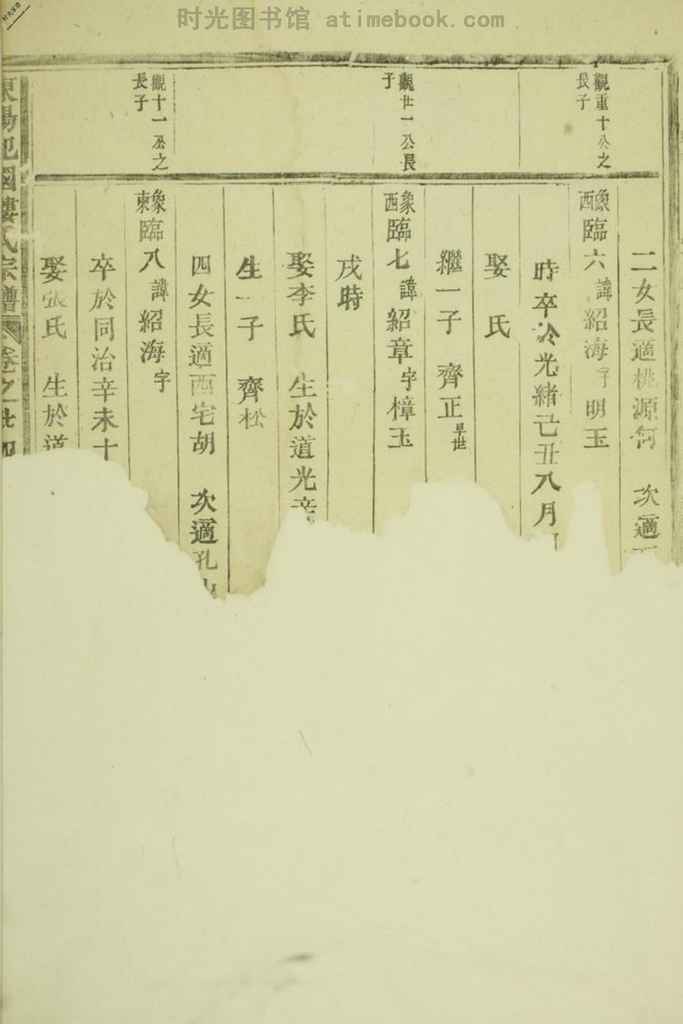 时光图书馆 atimebook.com
觀重十公之
長子
觀世一公長
子
觀十一公之
長子
二女長適桃源何 次適
象西臨六諱紹海字明玉
時卒於光緒己丑八月
娶 氏
繼一子 齊正早世
象西臨七諱紹章字樟玉
戌時
娶李氏 生於道光辛
生一子 齊松
四女長適西宅胡 次適孔山
象東臨八諱紹海字
卒於同治辛未十
娶張氏 生於道
東陽 國樓氏宗譜 卷之廿四